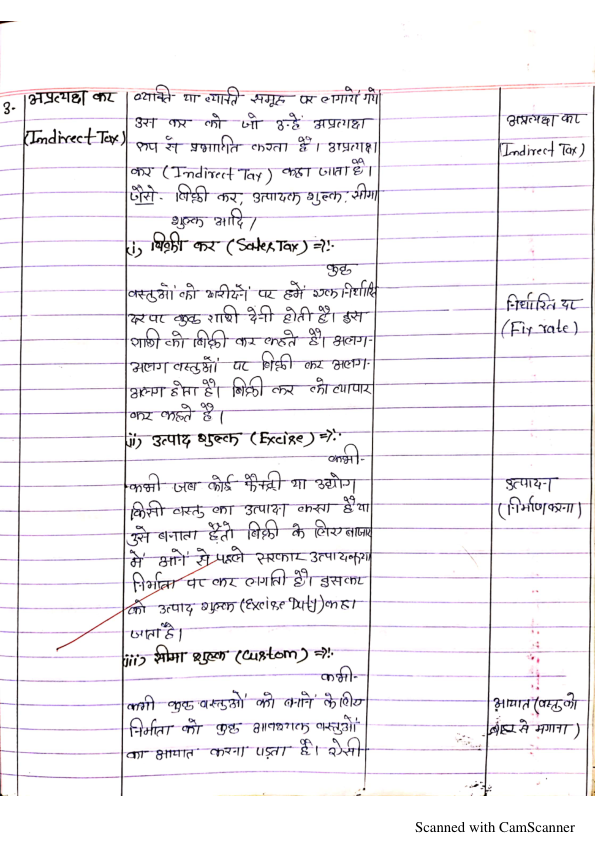 3-
अप्रत्यक्ष कर
(Indirect Tax)
व्यक्ति या व्यक्ति समूह पर लगाये गये
उस कर को जो उन्हें अप्रत्यक्ष
रूप से प्रभावित करता है। अप्रत्यक्ष
कर (Indirect Tax) कहा जाता है।
जैसे- बिक्री कर, उत्पादक शुल्क, सीमा
शुल्क आदि।
अप्रत्यक्ष कर
(Indirect Tax)
(i) बिक्री कर (Sales Tax) =>:-
कुछ
वस्तुओं को खरीदने पर हमें एक निर्धारित
दर पर कुछ राशी देनी होती है। इस
राशी को बिक्री कर कहते है। अलग-
अलग वस्तुओं पर बिक्री कर अलग-
अलग होता है। बिक्री कर को व्यापार
कर कहते है।
निर्धारित दर
(Fix rate)
(ii) उत्पाद शुल्क (Excise) =>:-
कभी-
कभी जब कोई फैक्ट्री या उद्योग
किसी वस्तु का उत्पादन करता है या
उसे बनाता है तो बिक्री के लिए बाजार
में आने से पहले सरकार उत्पादक या
निर्माता पर कर लगाती है। इस कर
को उत्पाद शुल्क (Excise Duty) कहा
जाता है।
उत्पादन
(निर्माण करना)
(iii) सीमा शुल्क (Custom) =>:-
कभी-
कभी कुछ वस्तुओं को बनाने के लिए
निर्माता को कुछ आवश्यक वस्तुओं
का आयात करना पड़ता है। ऐसी
आयात (वस्तु को
बाहर से मगाना)
Scanned with CamScanner